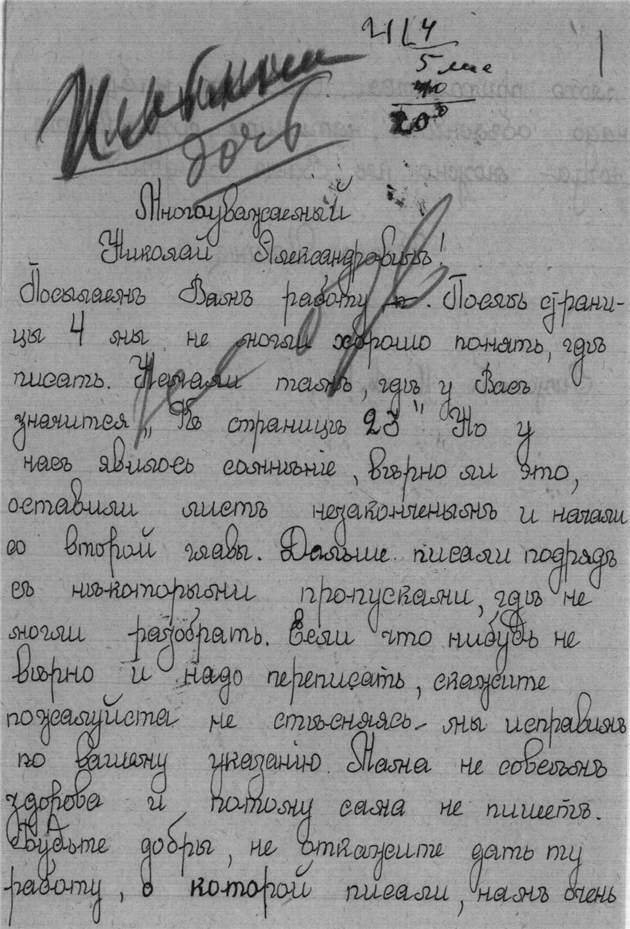 4
5
дочь
Многоуважаемый
Николай Александровичъ!
Посылаемъ Вамъ работу. Послѣ страни-
цы 4 мы не могли хорошо понять, гдѣ
писать. Начали тамъ, гдѣ у Васъ
значится „Къ страницѣ 23" Но у
насъ явилось сомнѣніе, вѣрно ли это,
оставили листъ незаконченымъ и начали
со второй главы. Дальше писали подрядъ
съ нѣкоторыми пропусками, гдѣ не
могли разобрать. Если что нибудь не
вѣрно и надо переписать, скажите
пожалуйста не стѣсняясь – мы исправимъ
по вашему указанію. Мама не совсѣмъ
здорова и потому сама не пишетъ.
Будьте добры, не откажите дать ту
работу, о которой писали, намъ очень